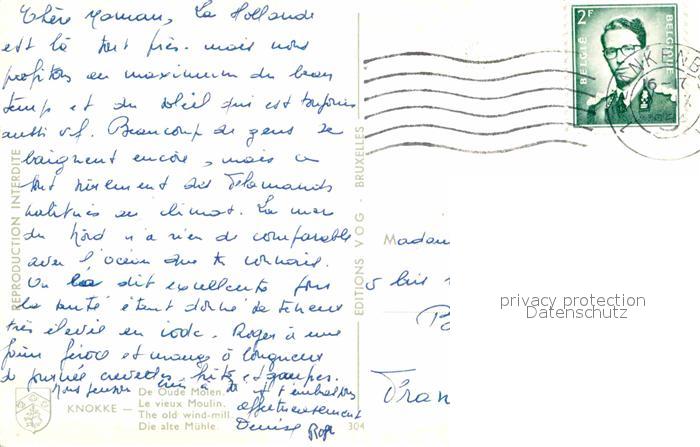 Chère Maman, La Hollande
est là tout près. mais nous
profitons au maximum du beau
temps et du soleil qui est toujours
aussi vif. Beaucoup de gens se
baignent encore, mais ce
sont sûrement des Flamands
habitués au climat. La mer
du Nord n'a rien de comparable
avec l'océan que tu connais.
On la dit excellente pour
la santé étant donné sa teneur
très élevée en iode. Roger a une
faim féroce et mange à longueur
de journée crevettes, frites et gaufres.
Nous pensons bien à toi et t'embrassons
affectueusement
Denise Roger
REPRODUCTION INTERDITE
EDITIONS VOG - BRUXELLES
KNOKKE —
De Oude Molen.
Le vieux Moulin.
The old wind-mill.
Die alte Mühle.
304
2F
BELGIË
BELGIQUE
16-17
Madam
5 bis
Fran
privacy protection
Datenschutz